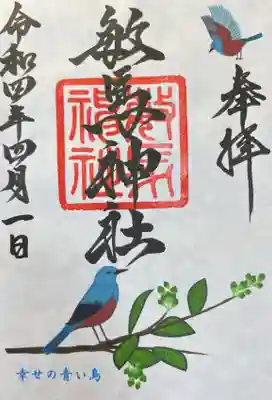 奉拝
敏馬神社
敏馬神社
令和四年四月一日
幸せの青い鳥